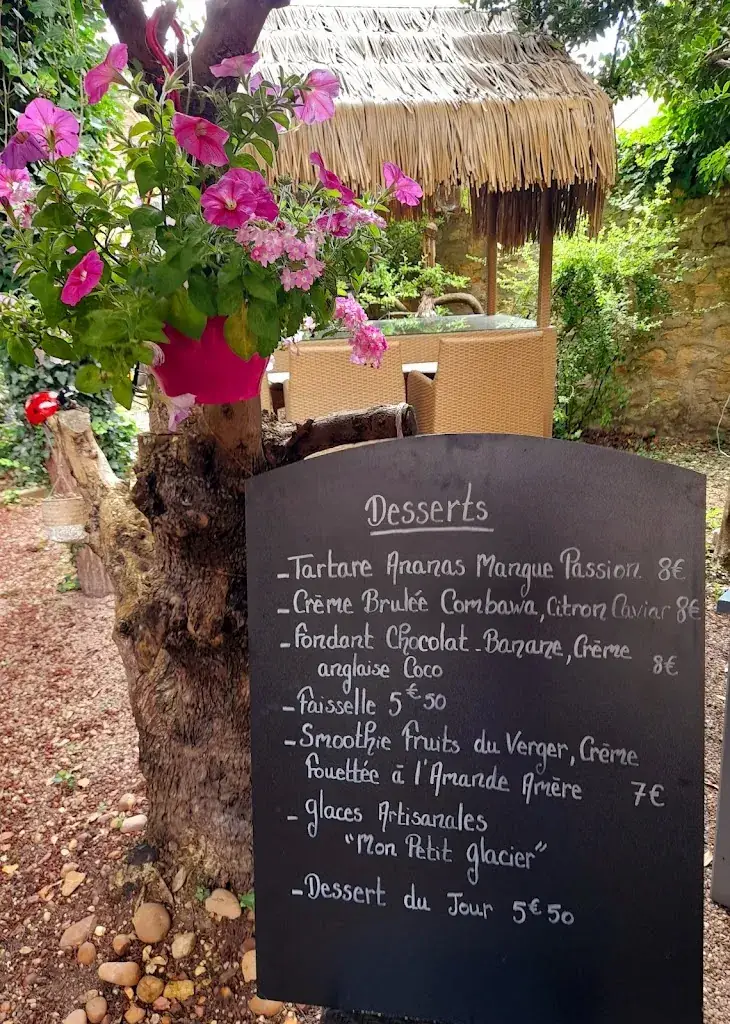 Desserts
- Tartare Ananas Mangue Passion 8€
- Crème Brulée Combawa, Citron Caviar 8€
- Fondant Chocolat - Banane, Crème
anglaise Coco 8€
- Faisselle 5€50
- Smoothie Fruits du Verger, Crème
fouettée à l'Amande Amère 7€
- Glaces Artisanales
"Mon Petit Glacier"
- Dessert du Jour 5€50